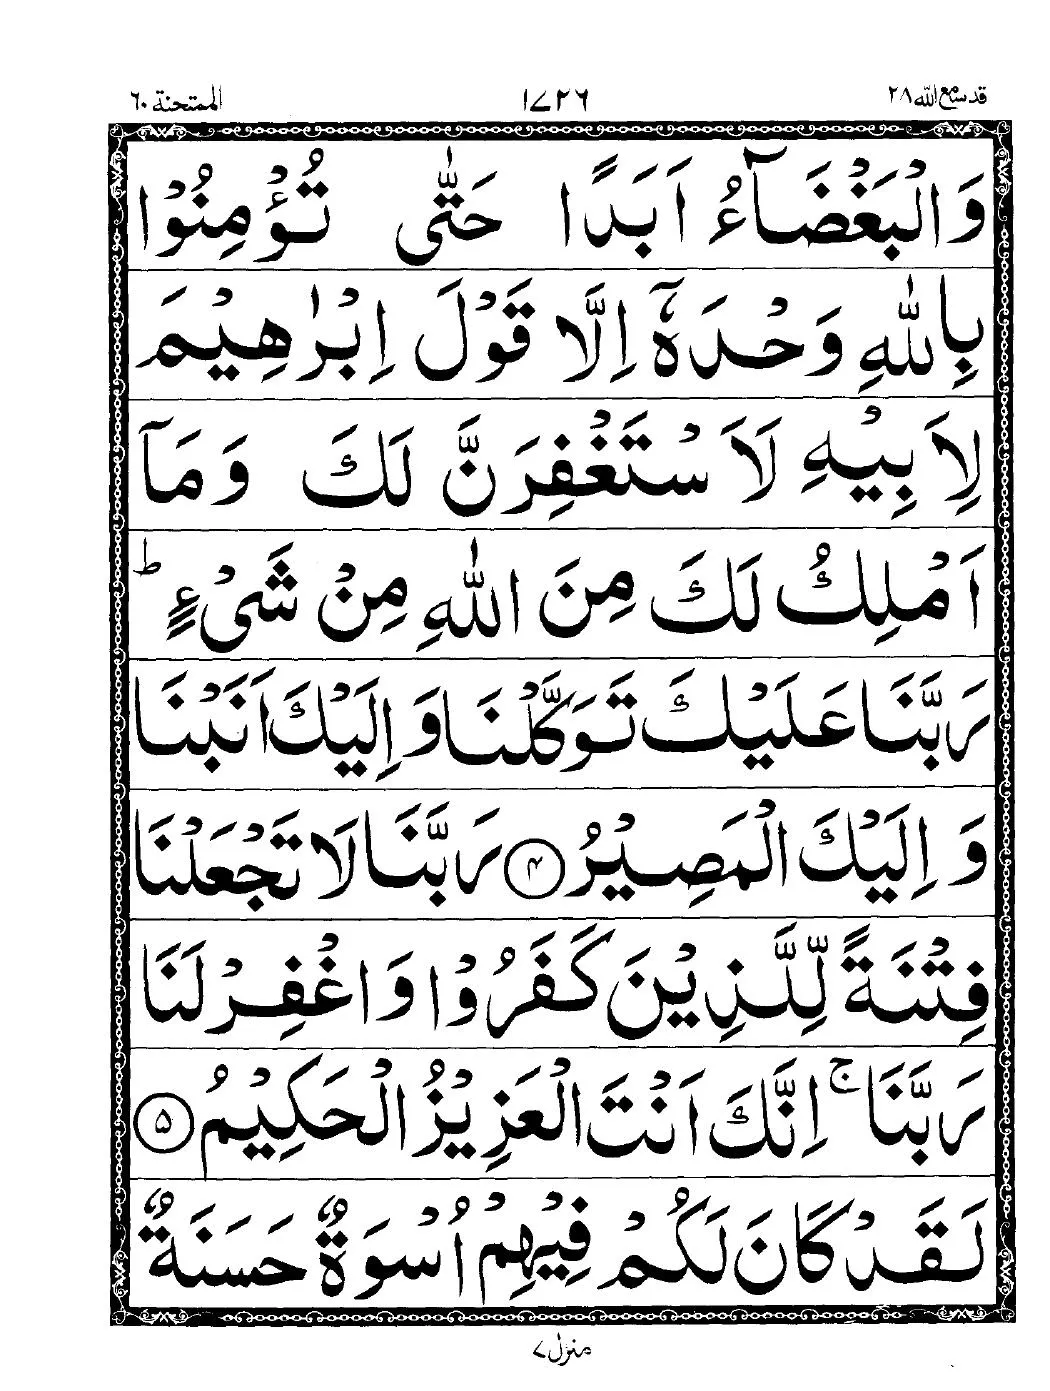 قد سمع الله ٢٨
١٧٢٦
الممتحنة ٦٠
وَالْبَغْضَآءُ اَبَدًا حَتّٰى تُؤْمِنُوْا
بِاللّٰهِ وَحْدَهٗۤ اِلَّا قَوْلَ اِبْرٰهِيْمَ
لِاَبِيْهِ لَاَسْتَغْفِرَنَّ لَكَ وَمَاۤ
اَمْلِكُ لَكَ مِنَ اللّٰهِ مِنْ شَىْءٍ ؕ
رَبَّنَا عَلَيْكَ تَوَكَّلْنَا وَاِلَيْكَ اَنَبْنَا
وَاِلَيْكَ الْمَصِيْرُ ۴ رَبَّنَا لَا تَجْعَلْنَا
فِتْنَةً لِّلَّذِيْنَ كَفَرُوْا وَاغْفِرْ لَنَا
رَبَّنَا ۚ اِنَّكَ اَنْتَ الْعَزِيْزُ الْحَكِيْمُ ۵
لَقَدْ كَانَ لَكُمْ فِيْهِمْ اُسْوَةٌ حَسَنَةٌ
منزل ٧